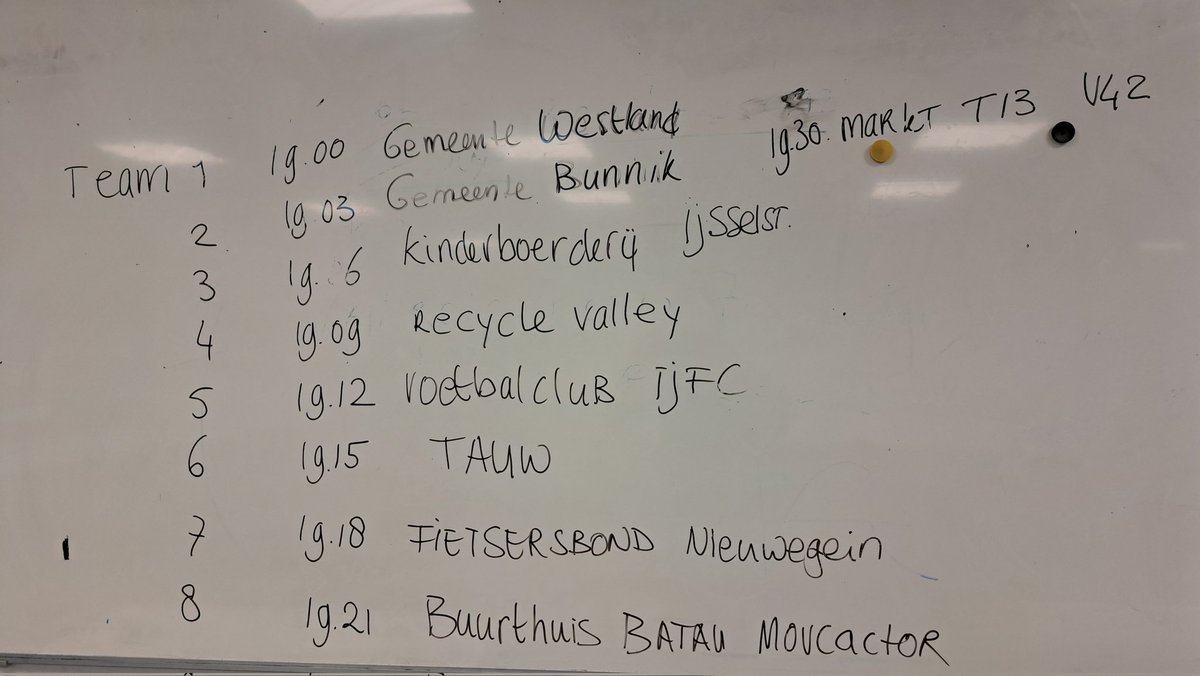 Team 1 19.00 Gemeente Westland 19.30. MARKT T13 V42
2 19.03 Gemeente Bunnik
3 19.6 Kinderboerderij Ijsselst.
4 19.09 Recycle Valley
5 19.12 Voetbalclub IjFC
6 19.15 TAUW
7 19.18 FIETSERSBOND Nieuwegein
8 19.21 Buurthuis BATAU MOVCACTOR